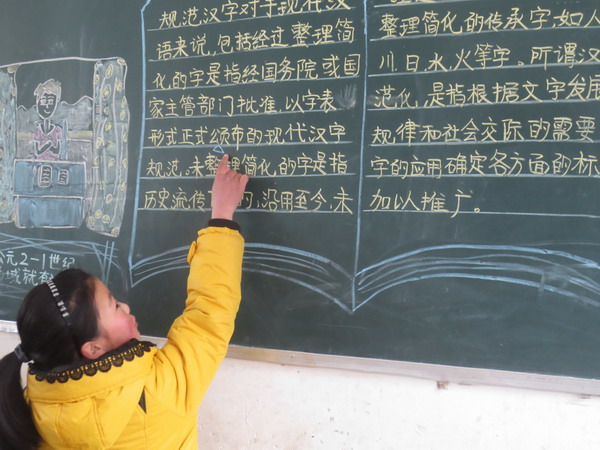 规范汉字对于现代汉
语来说,包括经过整理简
化的字是指经国务院或国
家主管部门批准,以字表
形式正式颁布的现代汉字
规范,未整理简化的字是指
历史流传的,沿用至今,未
整理简化的传承字如人
川日水,火等字。所谓汉
范化,是指根据文字发展
规律和社会交际的需要
字的应用确定各方面的标
加以推广。
公元2-1世纪
域就有